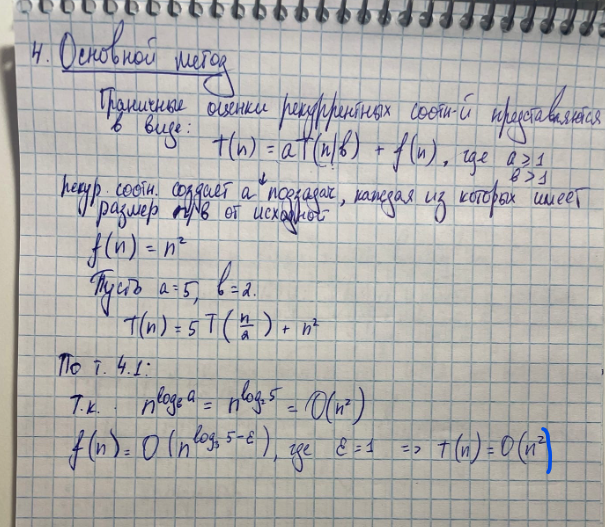 4. Основной метод
Граничные оценки рекуррентных соотн-й представляются
в виде:
T(n) = aT(n/b) + f(n), где a ≥ 1
b > 1
рекур. соотн. создает a подзадач, каждая из которых имеет
размер n/b от исходной
f(n) = n²
Пусть a = 5, b = 2.
T(n) = 5 T(n/2) + n²
По т. 4.1:
Т.к. n^(log_b a) = n^(log₂ 5) = O(n²)
f(n) = O(n^(log₂ 5-ε), где ε = 1 => T(n) = O(n²)